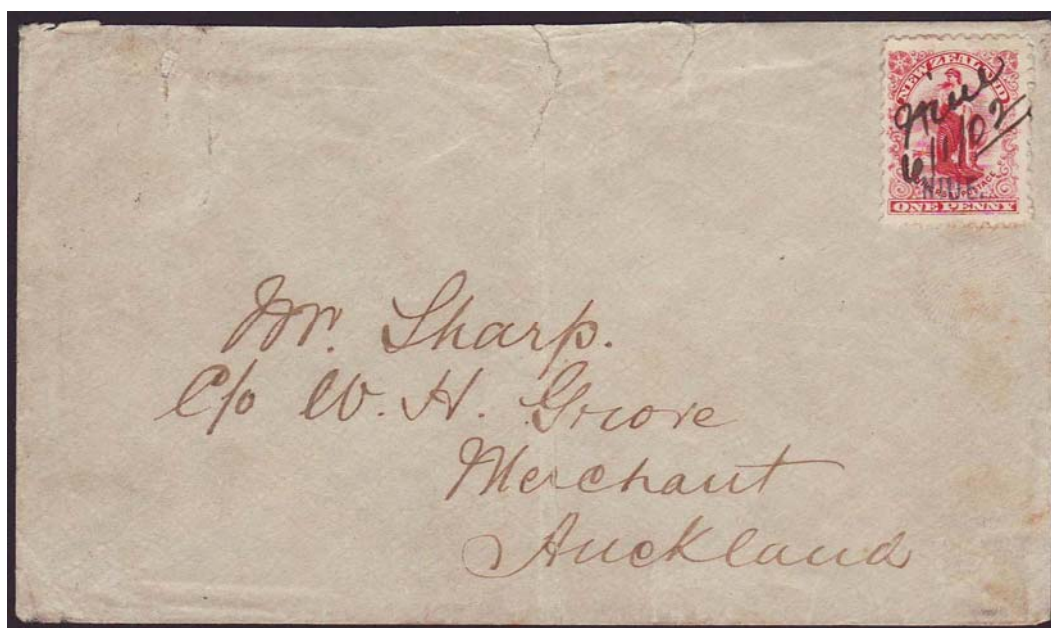 NEW ZEALAND
Niue
6/11/02
NIUE.
POSTAGE
ONE PENNY
Mr. Sharp.
C/o W. H. Grove
Merchant
Auckland